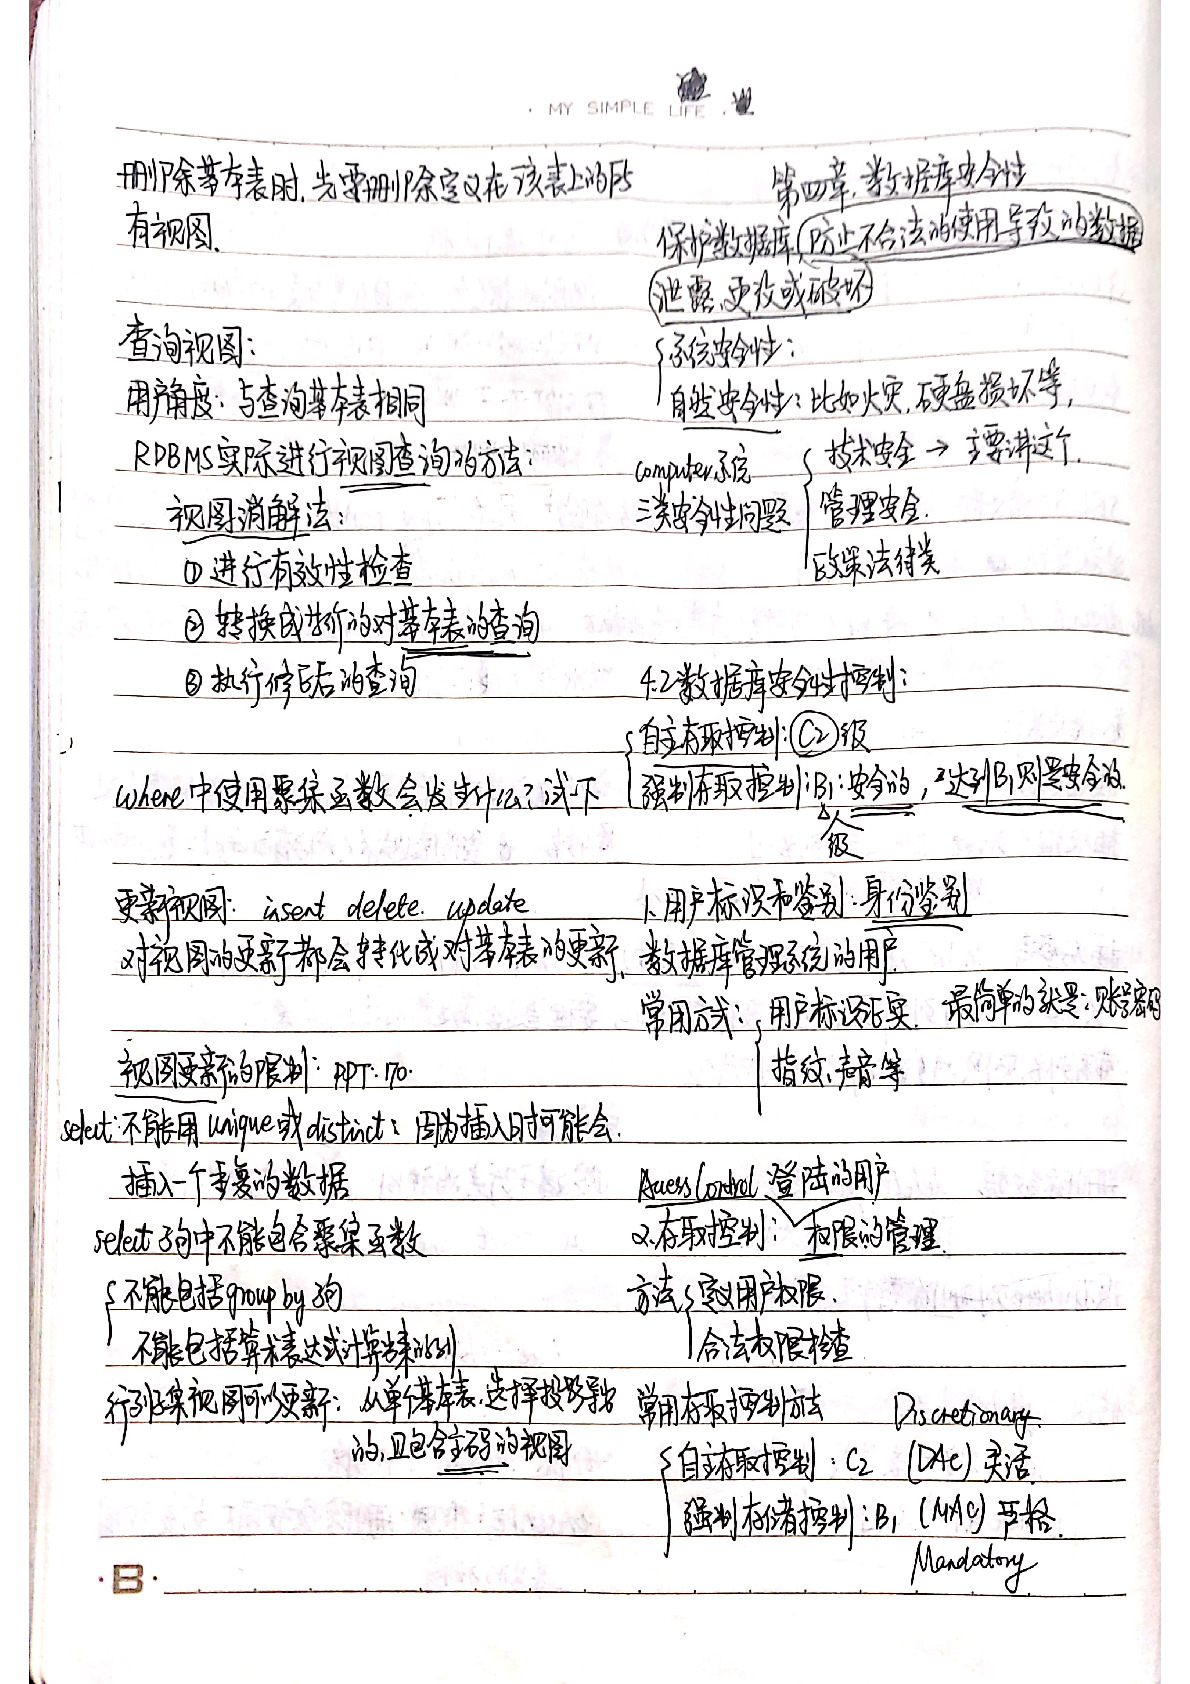 · MY SIMPLE LIFE ·
删除基本表时,先要删除定义在该表上的所
有视图.
查询视图:
用户角度:与查询基本表相同
RDBMS实际进行视图查询的方法:
视图消解法:
① 进行有效性检查
② 转换成等价的对基本表的查询
③ 执行修正后的查询
where中使用聚集函数会发生什么?试一下
更新视图: insert delete. update
对视图的更新都会转化成对基本表的更新.
视图更新的限制: PPT.70.
select:不能用unique或distinct:因为插入时可能会.
插入一个重复的数据
select子句中不能包含聚集函数
不能包括group by子句
不能包括算术表达式计算出来的列
行列子集视图可以更新:从单个基本表.选择投影导出
的,且包含主码的视图
第四章.数据库安全性
保护数据库,防止不合法的使用导致的数据
泄露、更改或破坏
系统安全性:
自然安全性:比如火灾,硬盘损坏等,
computer系统
三类安全性问题
技术安全 → 主要讲这个.
管理安全.
政策法律类
4.2数据库安全性控制:
自主存取控制:C2级
强制存取控制:B1:安全的,达到B1则是安全的.
级
1.用户标识和鉴别:身份鉴别
数据库管理系统的用户.
常用方式: 用户标识证实. 最简单的就是:账号密码
指纹,声音等
Access Control 登陆的用户
2.存取控制: 权限的管理.
方法 定义用户权限.
合法权限检查
常用存取控制方法 Discretionary.
自主存取控制:C2 (DAC) 灵活.
强制存储控制:B1 (MAC) 严格.
Mandatory
·B·